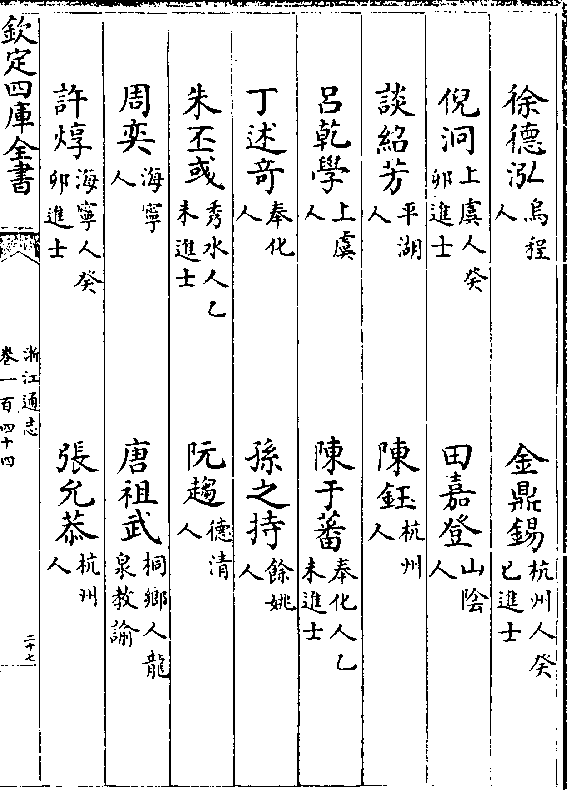 徐德泓烏程人 金鼎錫杭州人癸巳進士
倪洞上虞人癸卯進士 田嘉登山陰人
談紹芳平湖人 陳鈺杭州人
呂乾學上虞人 陳于蕃奉化人乙未進士
丁述竒奉化人 孫之持餘姚人
朱丕戓秀水人乙未進士 阮趨德清人
周奕海寧人 唐祖武桐鄉人龍泉教諭
許焞海寧人癸卯進士 張允恭杭州人
欽定四庫全書 浙江通志卷一百四十四 二十七